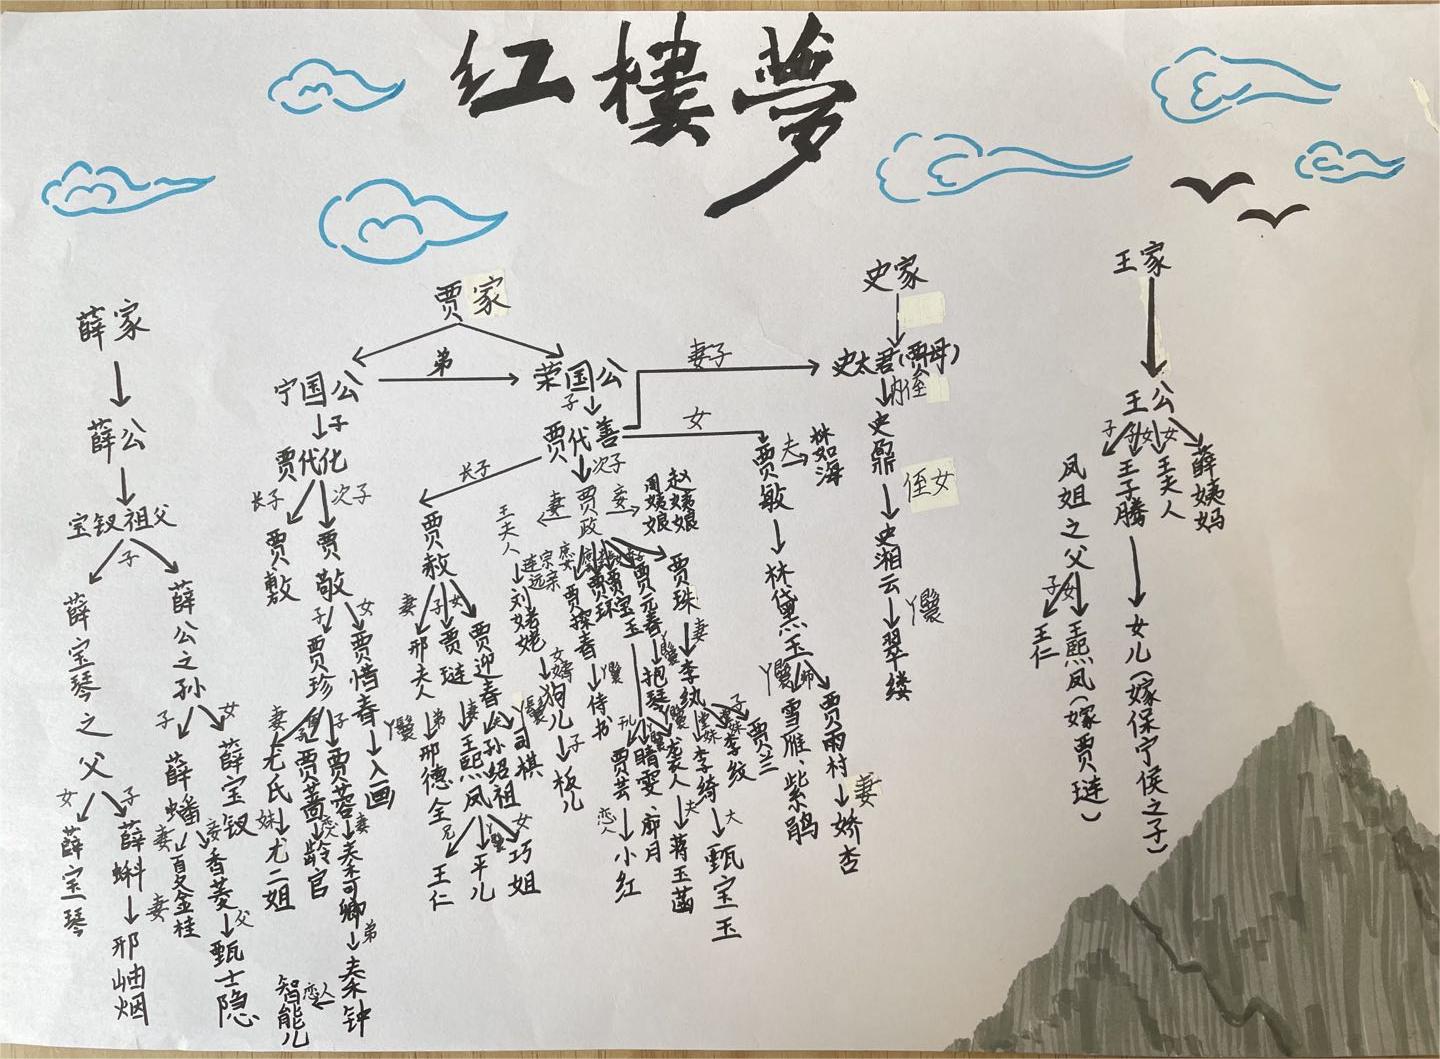 红楼夢
薛家
薛公
宝钗祖父
子
薛宝琴之父
女
子
薛宝琴
薛蝌
妻
邢岫烟
薛公之孙
子
女
薛蟠
薛宝钗
妻
妾
夏金桂
香菱
父
甄士隐
贾家
宁国公
弟
荣国公
子
贾代化
长子
次子
贾敷
贾敬
子
女
贾珍
贾惜春
丫鬟
入画
妻
子
尤氏
妹
尤二姐
贾蔷
恋人
龄官
贾蓉
妻
秦可卿
弟
秦钟
恋人
智能儿
子
贾代善
妻子
女
长子
次子
贾赦
妻
子
女
邢夫人
弟
邢德全
贾琏
妻
王熙凤
兄
王仁
平儿
女
巧姐
贾迎春
夫
孙绍祖
丫鬟
司棋
贾政
妻
王夫人
连远宗亲
刘姥姥
女婿
狗儿
子
板儿
妾
周姨娘
赵姨娘
庶女
贾探春
侍书
贾环
贾宝玉
贾芸
恋人
小红
晴雯、
麝月
袭人
夫
蒋玉菡
贾元春
丫鬟
抱琴
贾珠
妻
李纨
子
贾兰
李纹
李绮
夫
甄宝玉
贾敏
夫
林如海
林黛玉
丫鬟
师
雪雁、紫鹃
贾雨村
妻
娇杏
史家
史太君(贾母)
内侄
史鼐
侄女
史湘云
丫鬟
翠缕
王家
王公
子
子
女
女
凤姐之父
子
女
王仁
王熙凤(嫁贾琏)
王子腾
女儿(嫁保宁侯之子)
王夫人
薛姨妈